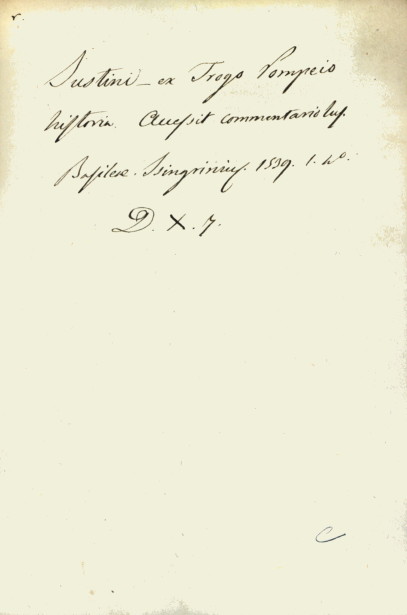 r.
Justini – ex Trogo Pompeio
historia. Accessit commentariolus.
Basileæ. Isingrinius. 1539. 1. 4º.
D. X. 7.
C